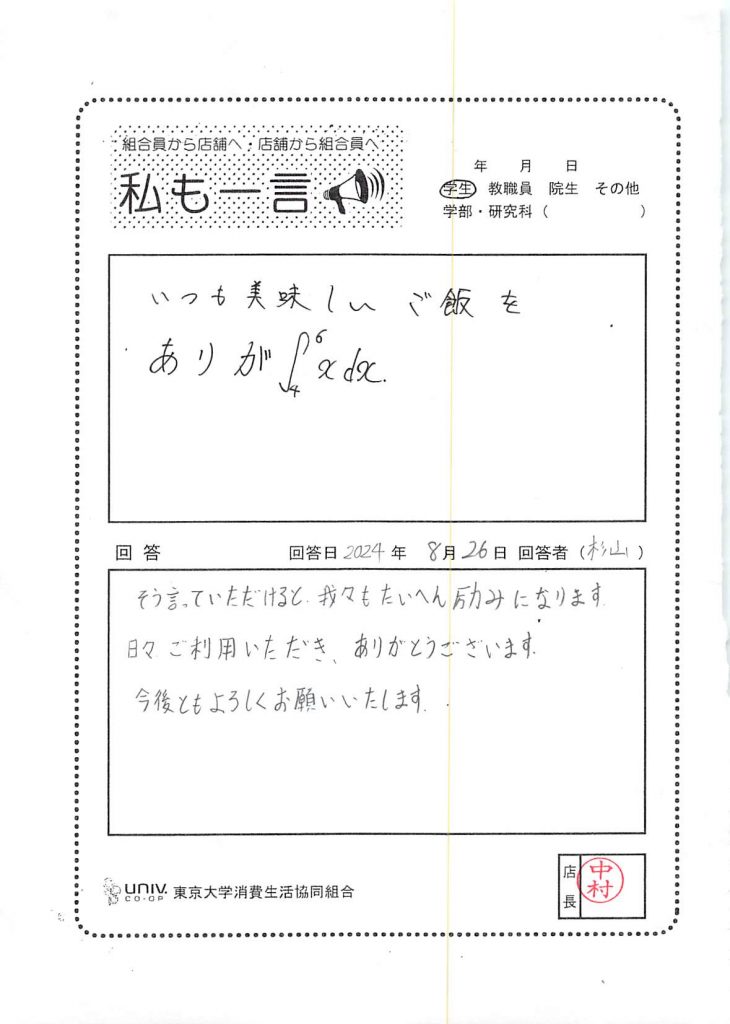 組合員から店舗へ・店舗から組合員へ
私も一言
年 月 日
学生 教職員 院生 その他
学部・研究科（ ）
いつも美味しい ご飯を
ありが∫₄⁶xdx.
回答 回答日 2024 年 8月 26日 回答者（杉山）
そう言っていただけると、我々もたいへん励みになります。
日々ご利用いただき、ありがとうございます。
今後ともよろしくお願いいたします。
UNIV. CO-OP 東京大学消費生活協同組合
店長 中村